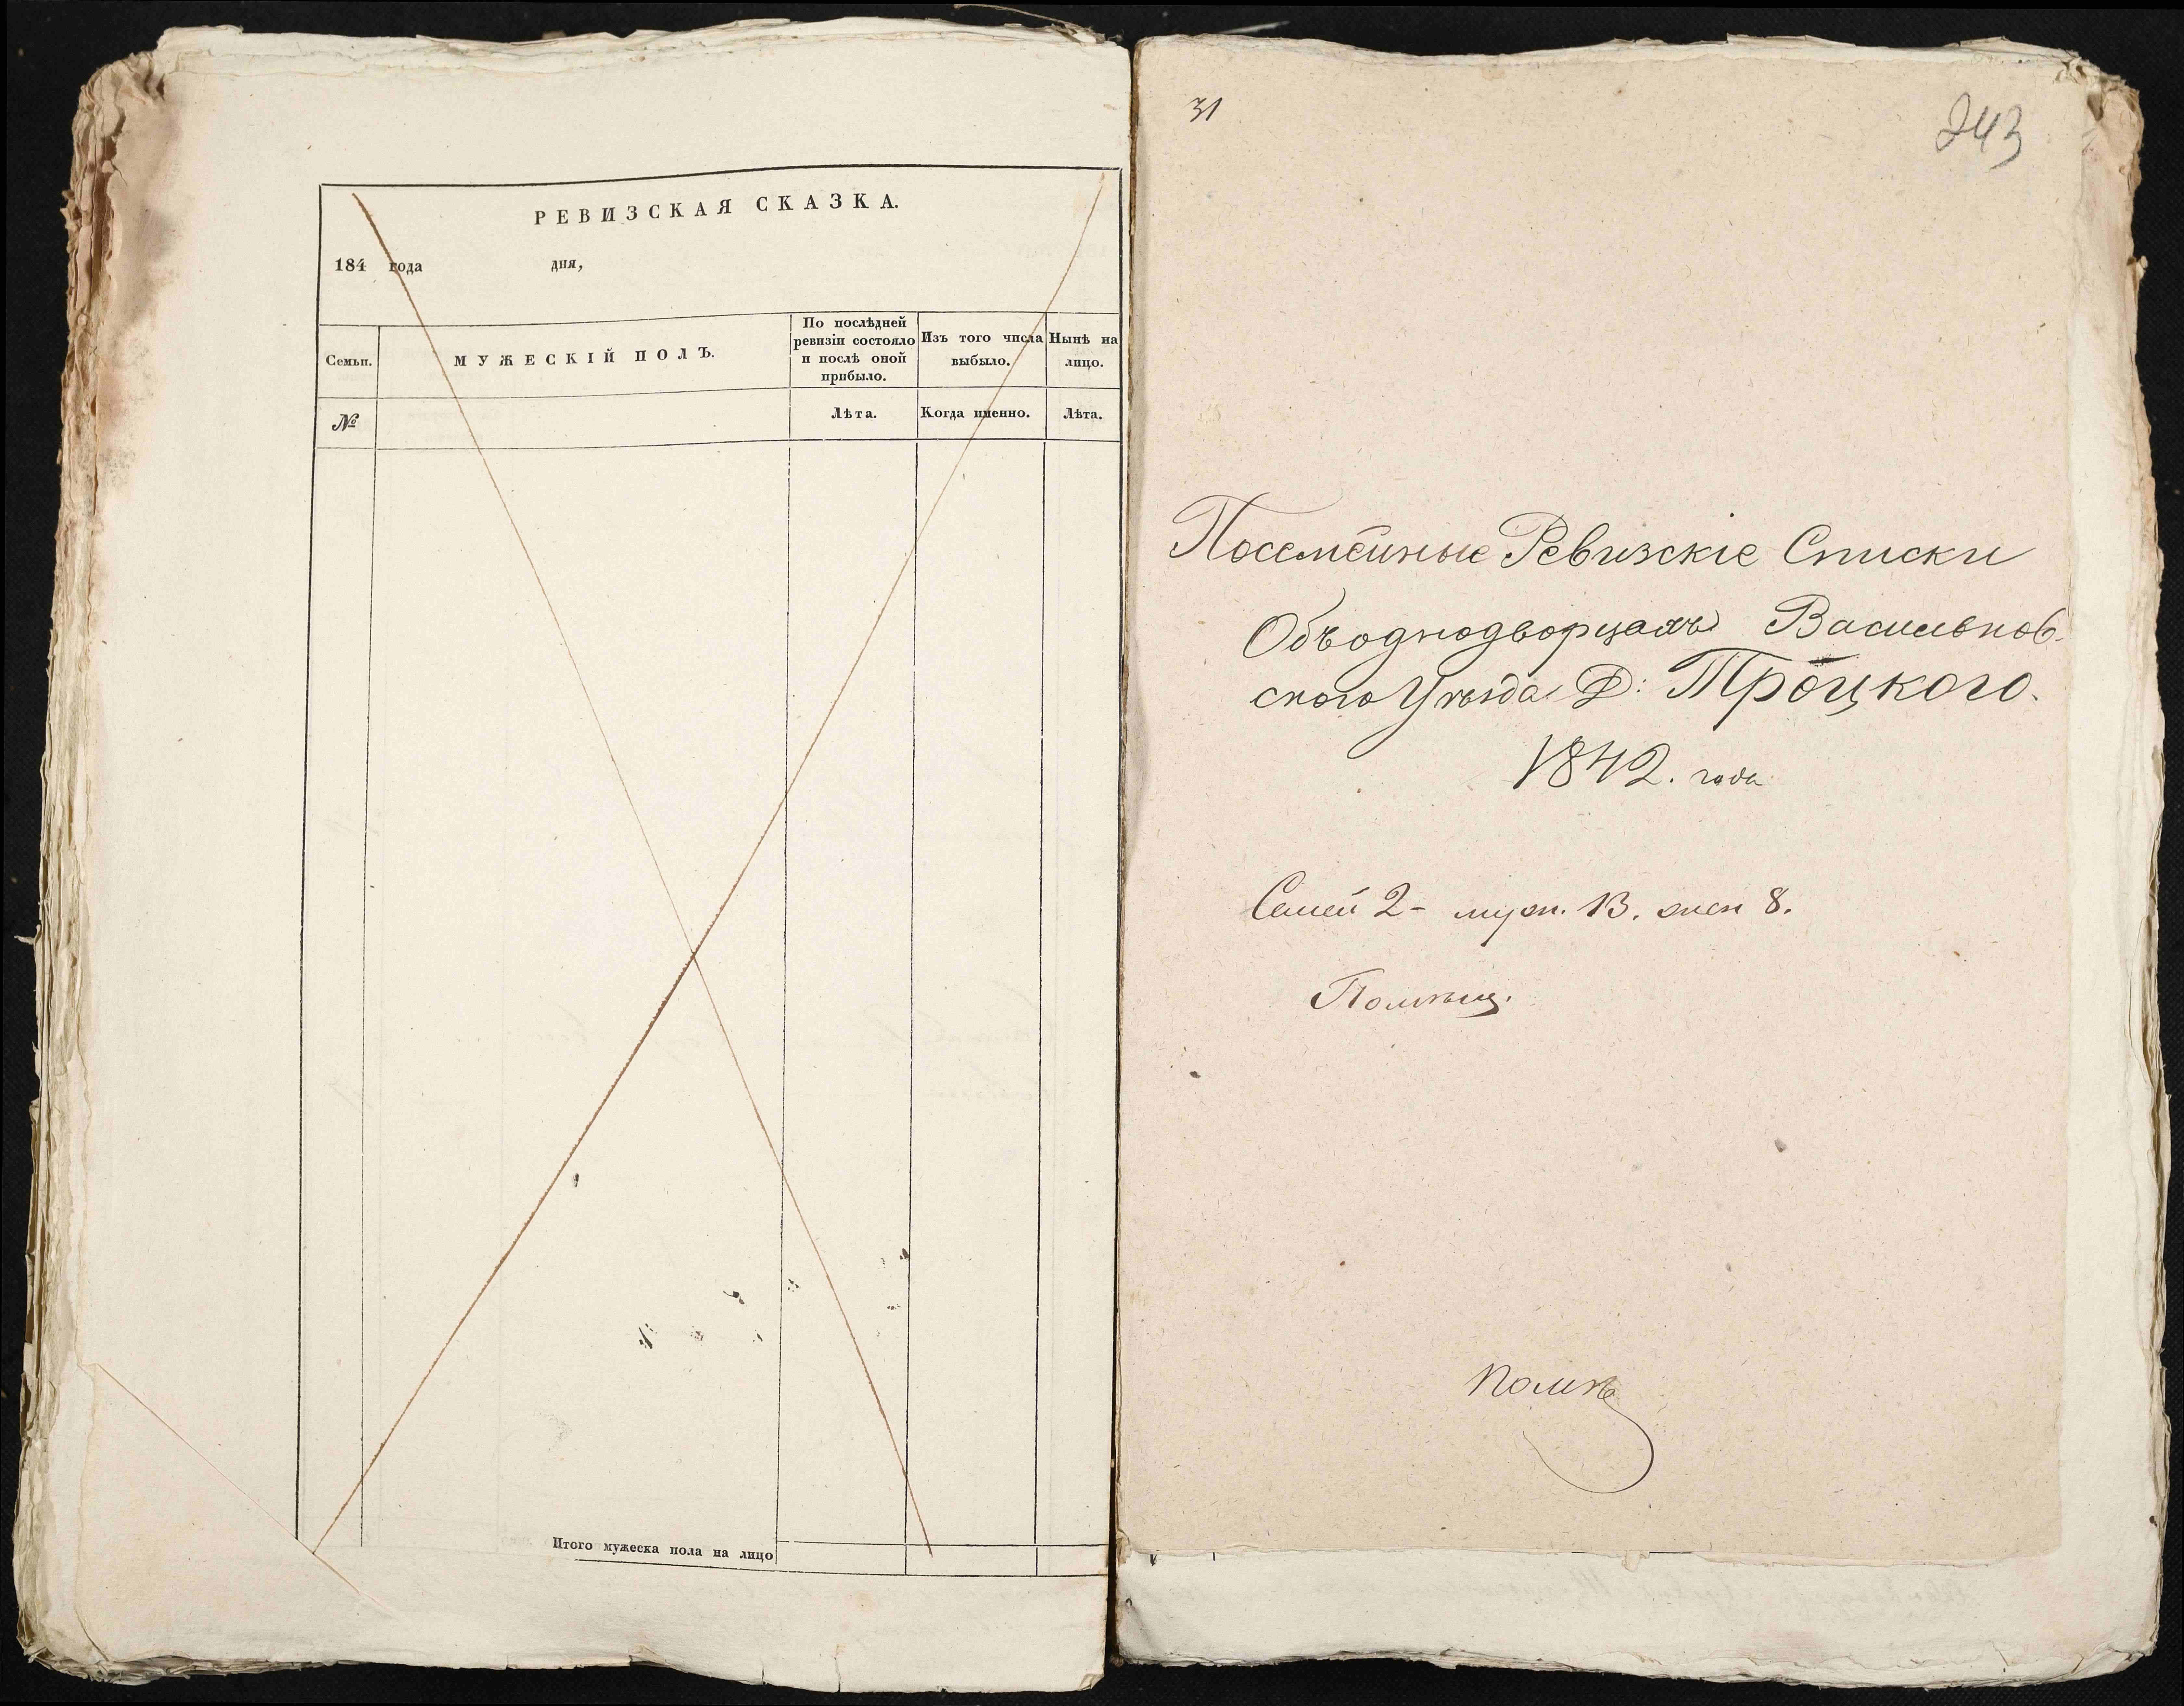 РЕВИЗСКАЯ СКАЗКА.
184 года дня,
Семьи.
МУЖЕСКІЙ ПОЛЪ.
По послѣдней
ревизіи состояло
и послѣ оной
прибыло.
Изъ того числа
выбыло.
Нынѣ на
лицо.
№
Лѣта.
Когда именно.
Лѣта.
Итого мужеска пола на лицо
31
243
Посемейные Ревизскіе Списки
Объ однодворцахъ Васильков-
ского Уѣзда Д: Троцкого.
1842. года
Семей 2 - муж. 13. жен 8.
Помѣщ.